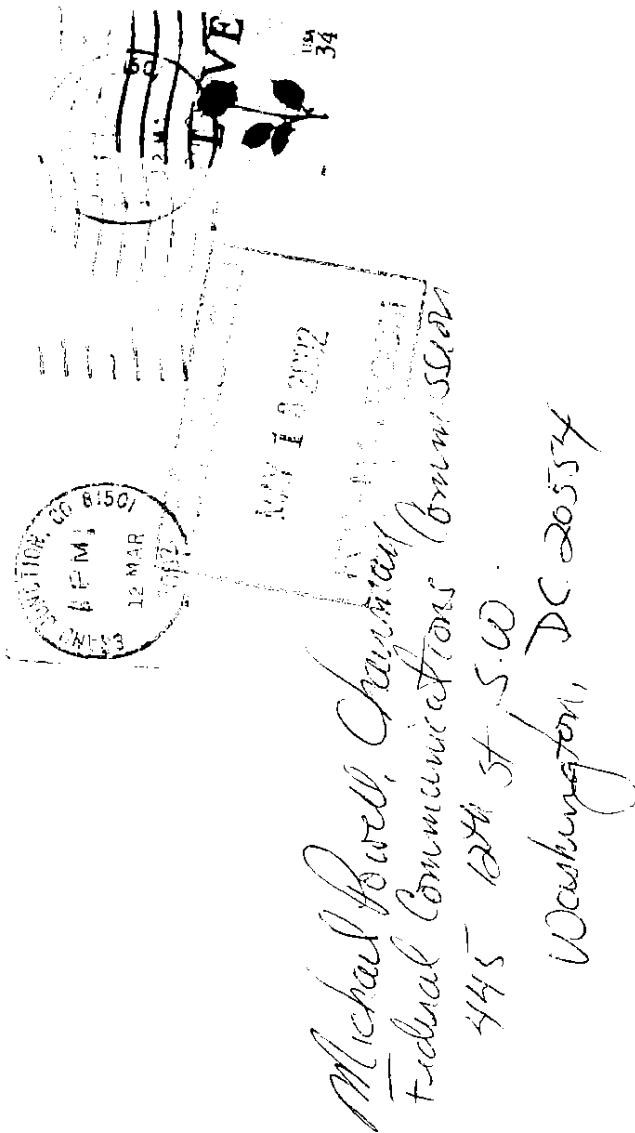 L VE
USA
34
GRAND JUNCTION, CO 81501
PM
12 MAR
2002
18 2002
Michael Powell, Chairman
Federal Communications Commission
445 12th St S.W.
Washington, DC 20554